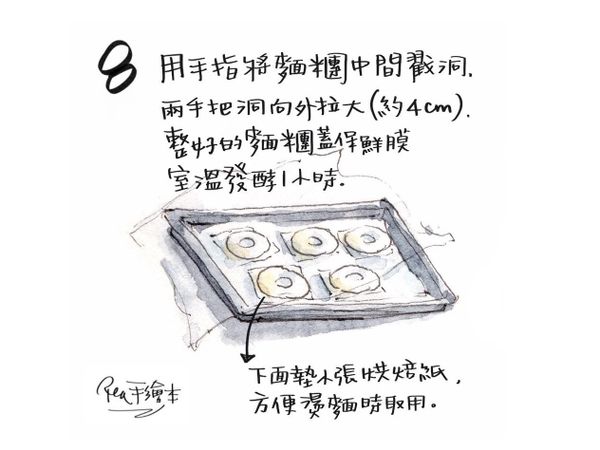 8 用手指將麵糰中間戳洞.
兩手把洞向外拉大(約4cm).
整好的麵糰蓋保鮮膜
室溫發酵1小時.
下面墊小張烘焙紙,
方便燙麵時取用。
手繪本